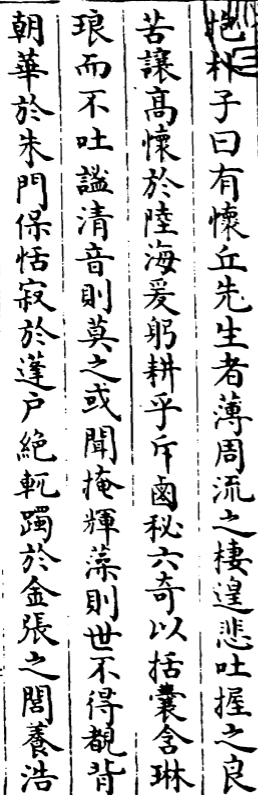 抱朴子曰有懷丘先生者薄周流之棲遑悲吐握之良
苦讓髙懷於陸海爰躬耕乎斥鹵秘六奇以括囊含琳
琅而不吐謐清音則莫之或聞掩輝藻則世不得覩背
朝華於朱門保恬寂於蓬户絶軌躅於金張之閭養浩